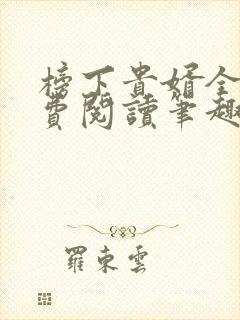 榜下貴婿全
費閱讀筆趣
羅東雲